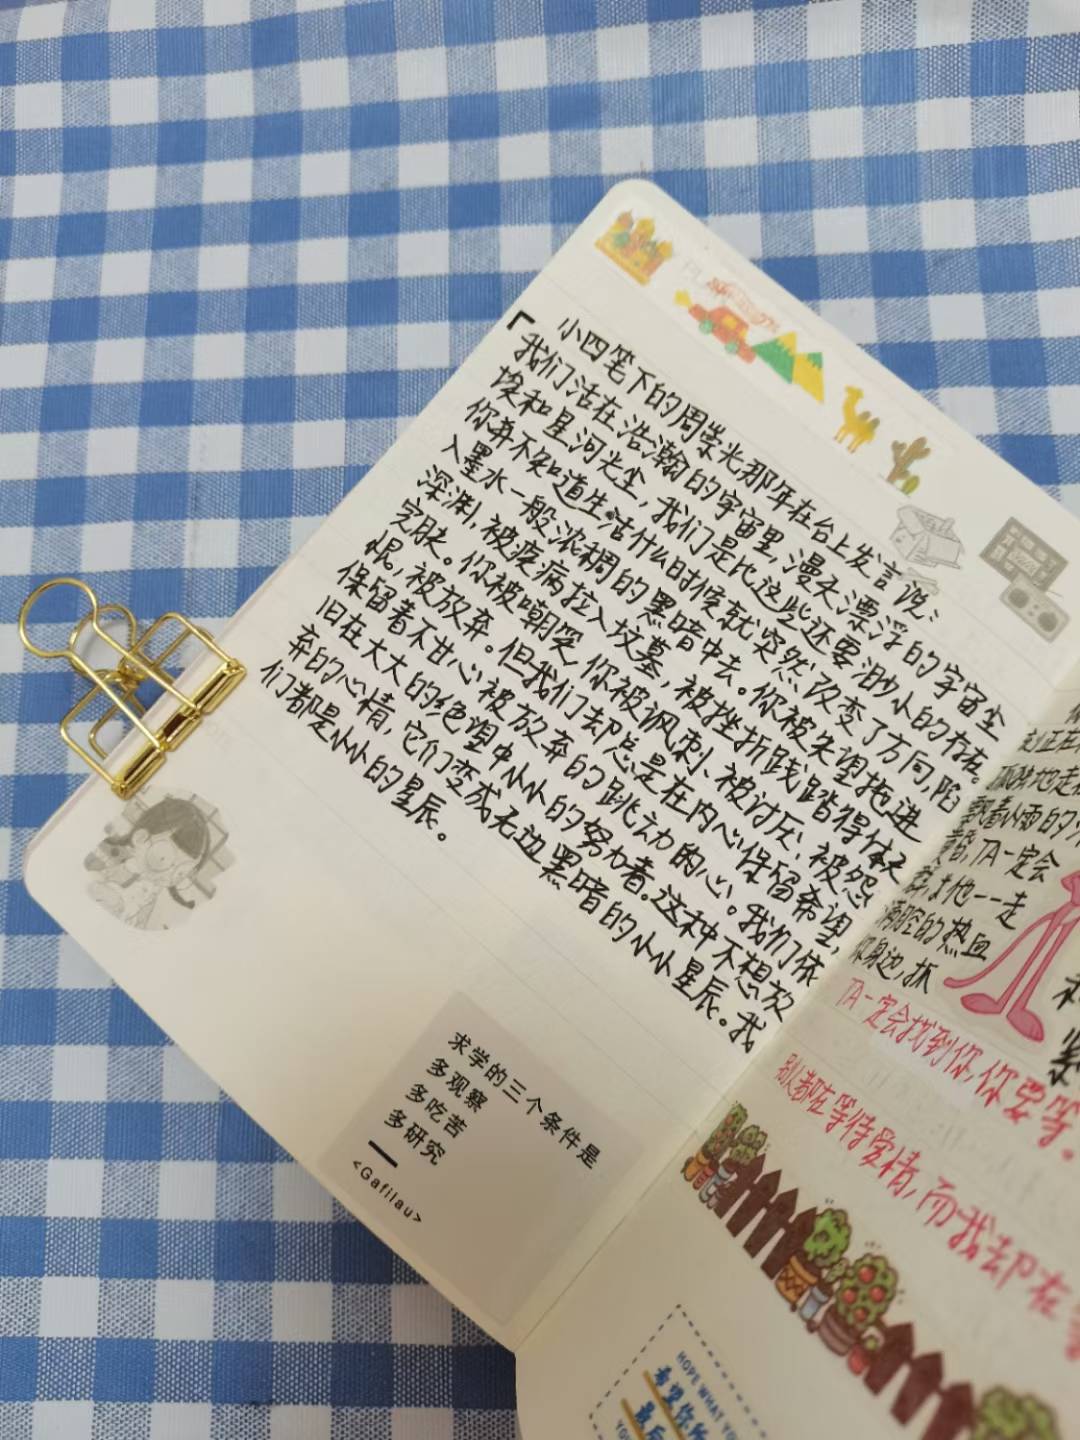 小四笔下的周崇光那年在台上发言说：
「我们活在浩瀚的宇宙里，漫天漂浮的宇宙尘
埃和星河光尘，我们是比这些还要渺小的存在。
你并不知道生活什么时候就突然改变了方向，陷
入墨水一般浓稠的黑暗中去。你被失望拖进
深渊，被疾病拉入坟墓，被挫折践踏得体无
完肤。你被嘲笑，你被讽刺、被讨厌，被怨
恨，被放弃。但我们却总是在内心保留希望，
保留着不甘心被放弃的跳动的心。我们依
旧在大大的绝望中小小的努力着。这种不想放
弃的心情，它们变成无边黑暗的小小星辰。我
们都是小小的星辰。
求学的三个条件是
多观察
多吃苦
多研究
<Gafilau>
TA一定会
满腔的热血
你身边，抓
TA一定会找到你，你要等。
别人都在等待爱情，而我却在
HOPE WHAT YOU
希望你所
最后